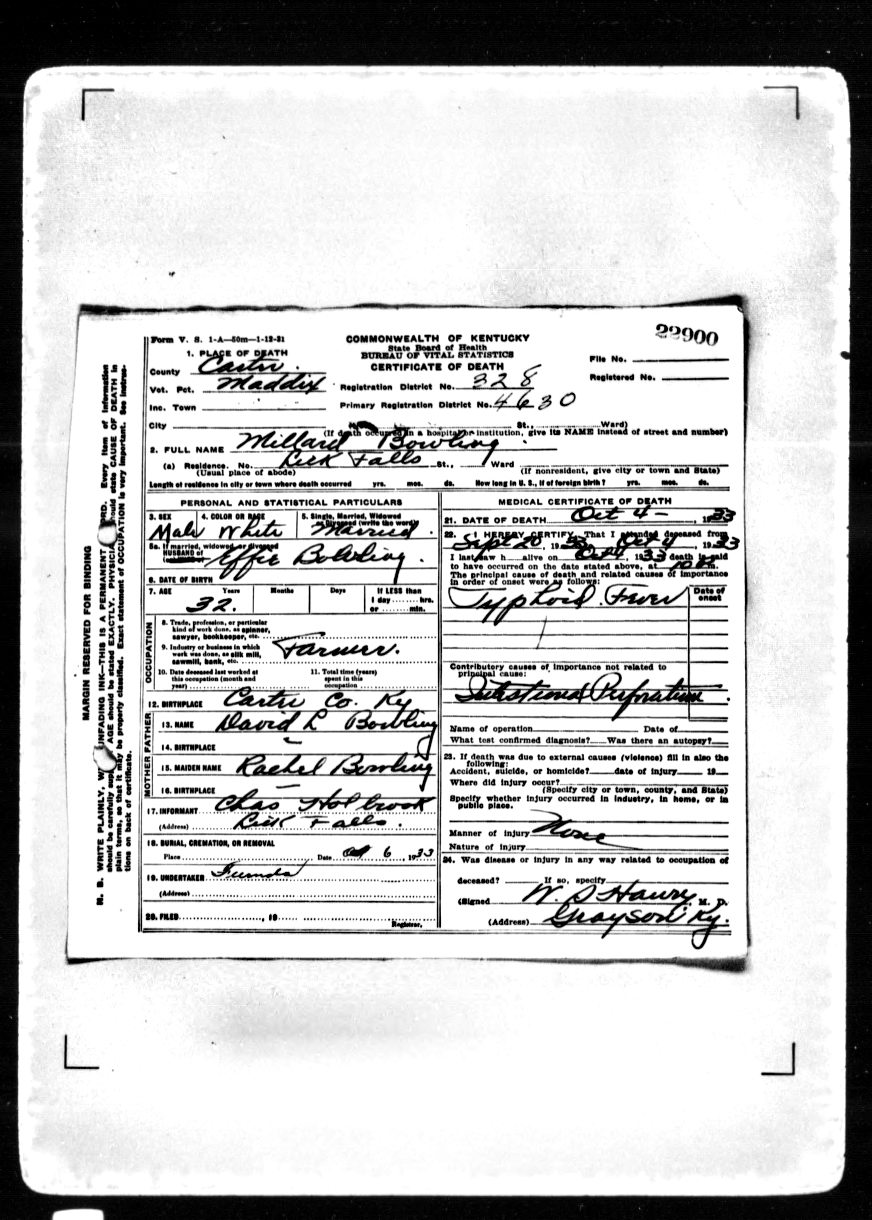 22900
Form V. S. 1-A—50m—1-12-31
COMMONWEALTH OF KENTUCKY
State Board of Health
BUREAU OF VITAL STATISTICS
CERTIFICATE OF DEATH
File No.
Registered No.
1. PLACE OF DEATH
County Carter
Vot. Pct. Maddix
Registration District No. 328
Inc. Town
Primary Registration District No. 4630
City St., Ward)
(If death occurred in a hospital or institution, give its NAME instead of street and number)
2. FULL NAME Millard Bowling
(a) Residence. No. Lick Falls St., Ward
(Usual place of abode) (If nonresident, give city or town and State)
Length of residence in city or town where death occurred yrs. mos. ds. How long in U. S., if of foreign birth? yrs. mos. ds.
PERSONAL AND STATISTICAL PARTICULARS
3. SEX 4. COLOR OR RACE 5. Single, Married, Widowed
or Divorced (write the word)
Male White Married
5a. If married, widowed or divorced
HUSBAND of
Effie Bowling
6. DATE OF BIRTH
7. AGE Years Months Days If LESS than
1 day hrs.
or min.
32
OCCUPATION
8. Trade, profession, or particular
kind of work done, as spinner,
sawyer, bookkeeper, etc.
Farmer.
9. Industry or business in which
work was done, as silk mill,
sawmill, bank, etc.
10. Date deceased last worked at
this occupation (month and
year)
11. Total time (years)
spent in this
occupation
12. BIRTHPLACE Carter Co. Ky
FATHER
13. NAME David L Bowling
14. BIRTHPLACE —
MOTHER
15. MAIDEN NAME Rachel Bowling
16. BIRTHPLACE —
17. INFORMANT Chas Holbrook
(Address) Lick Falls.
18. BURIAL, CREMATION, OR REMOVAL
Place Date Oct 6, 1933
19. UNDERTAKER
(Address)
20. FILED , 19
Registrar.
MEDICAL CERTIFICATE OF DEATH
21. DATE OF DEATH Oct 4 — , 1933
22. I HEREBY CERTIFY, That I attended deceased from
Sept 20 1933 Oct 4 1933
I last saw h alive on Oct 4, 1933 death is said
to have occurred on the date stated above, at 10
The principal cause of death and related causes of importance
in order of onset were as follows:
Date of
onset
Typhoid Fever
Contributory causes of importance not related to
principal cause:
Intestional Perforation
Name of operation Date of
What test confirmed diagnosis? Was there an autopsy?
23. If death was due to external causes (violence) fill in also the
following:
Accident, suicide, or homicide? date of injury 19
Where did injury occur?
(Specify city or town, county, and State)
Specify whether injury occurred in industry, in home, or in
public place.
Manner of injury None
Nature of injury
24. Was disease or injury in any way related to occupation of
deceased? If so, specify
(Signed W. D Haury M. D.
(Address) Grayson Ky.
MARGIN RESERVED FOR BINDING
N. B. WRITE PLAINLY, UNFADING INK—THIS IS A PERMANENT Every item of information
should be carefully AGE should be stated EXACTLY. state CAUSE OF DEATH in
plain terms, so that it may be properly classified. Exact statement of OCCUPATION is very important. See instruc-
tions on back of certificate.